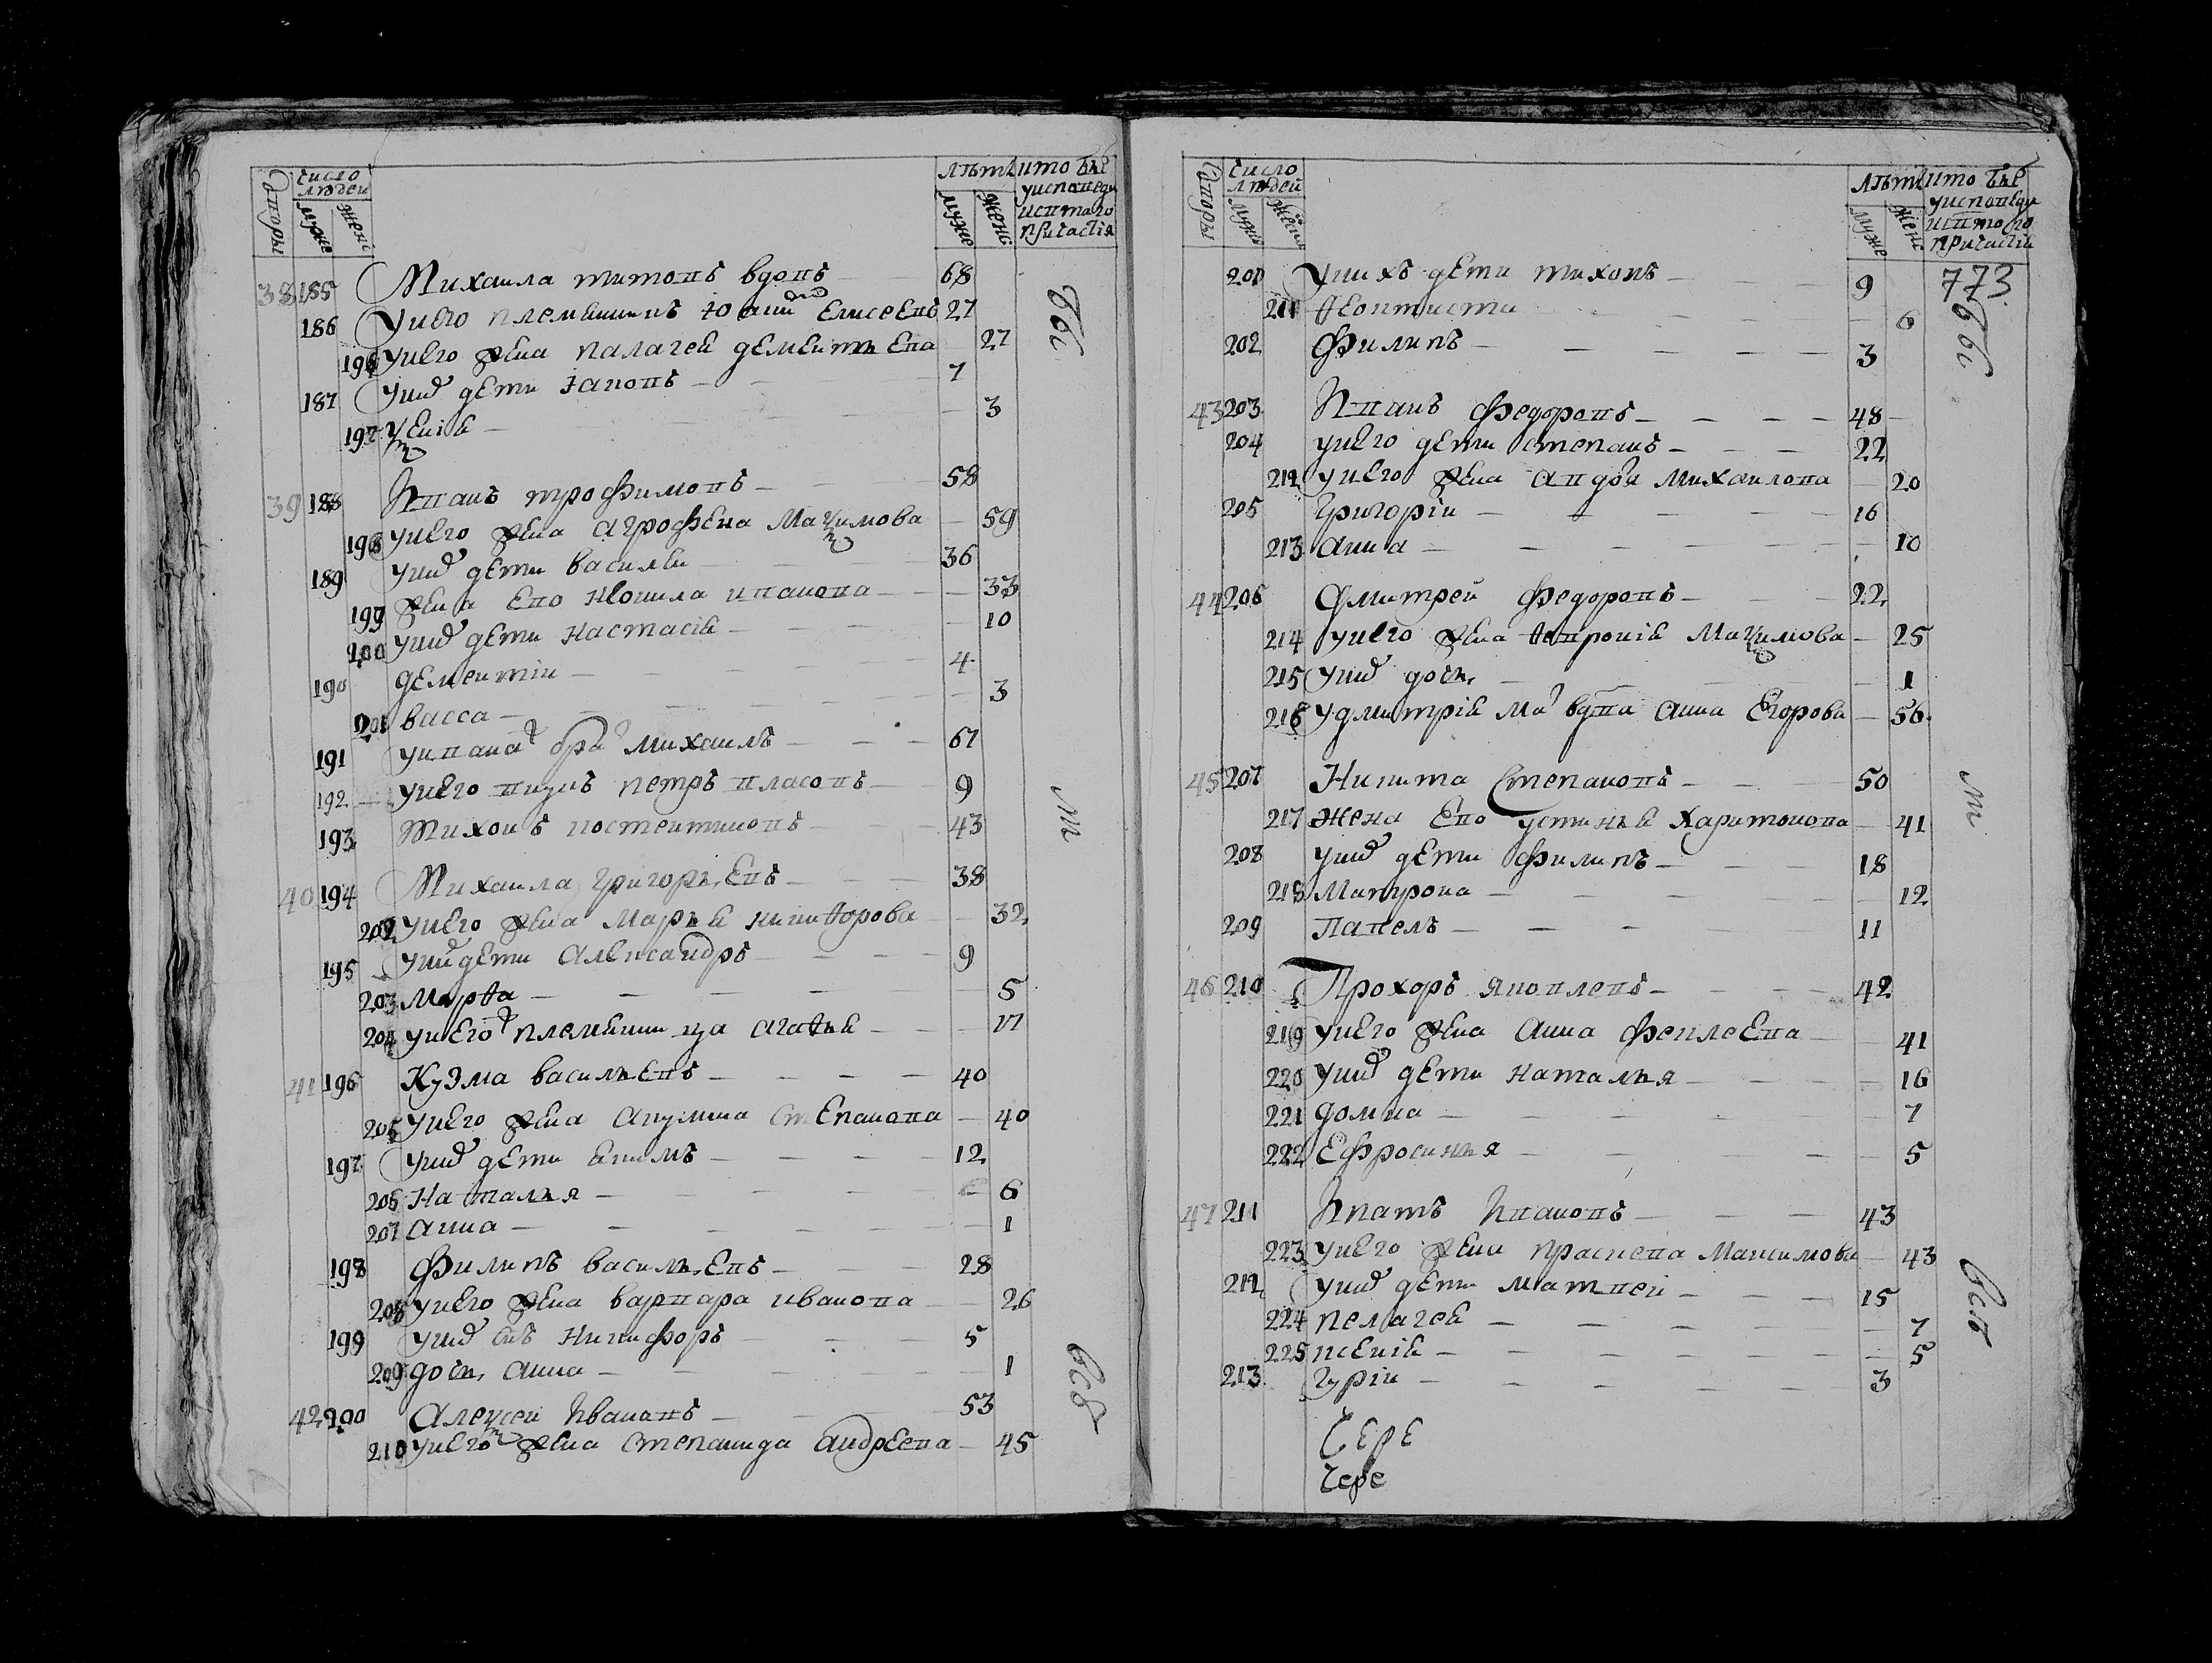 Дворы
Число людей
Муже
Женс
Лѣта
Муже
Женс
кто был у исповеди и святаго причастия
38 185 Михаила Титовъ вдовъ — 68
186 У него племянникъ Елисеевъ 27
196 У него жена Палагея Дементьева 27
187 У них дети Яковъ — 7
197 Ксения — 3
39 188 Иванъ Трофимовъ — 58
198 У него жена Агрофена Максимова — 59
189 У них дети Василеи — 36
199 Жена Ево Иванова — 33
200 У них дети Настасия — 10
190 Дементии — 4
201 Васса — 3
191 У Ивана брат Михаилъ — 67
192 У него внукъ Петръ Власовъ — 9
193 Тихонъ Костентиновъ — 43
40 194 Михаила Григорьевъ — 38
202 У него жена Марья Никиѳорова — 32
195 У них дети Александръ — 9
203 Марѳа — 5
204 У него племянница Агаѳья — 17
41 196 Кузма Васильевъ — 40
205 У него жена Акулина Степанова — 40
197 У них дети Екимъ — 12
206 Наталья — 6
207 Анна — 1
198 Филипъ Васильевъ — 28
208 У него жена Варвара Иванова — 26
199 У них снъ Никифоръ — 5
209 Дочь Анна — 1
42 200 Алексеи Ивановъ — 53
210 У него жена Степанида Андреева — 45
был
и
всѣ
Дворы
Число людей
Муже
Женс
Лѣта
Муже
Женс
кто был у исповеди и святаго причастия
773
201 У них дети Тихонъ — 9
211 Феоктиста — 6
202 Филипъ — 3
43 203 Иванъ Федоровъ — 48
204 У него дети Степанъ — 22
212 У него жена Авдотья Михаилова — 20
205 Григории — 16
213 Анна — 10
44 206 Дмитрей Федоровъ — 22
214 У него жена Ѳевронія Максимова — 25
215 У них дочь — 1
216 У Дмитрия мать вдова Анна Егорова — 56
45 207 Никита Степановъ — 50
217 Жена Ево Устинья Харитонова — 41
208 У них дети Филипъ — 18
218 Матрона — 12
209 Павелъ — 11
46 210 Прохоръ Яковлевъ — 42
219 У него жена Анна — 41
220 У них дети Наталья — 16
221 Домна — 7
222 Ефросинья — 5
47 211 Ипатъ Ивановъ — 43
223 У него жена Прасковя Максимова — 43
212 У них дети Матвеи — 15
224 Пелагея — 7
225 Ксения — 5
213 Гурии — 3
Чере
Чере
был
и
всѣ